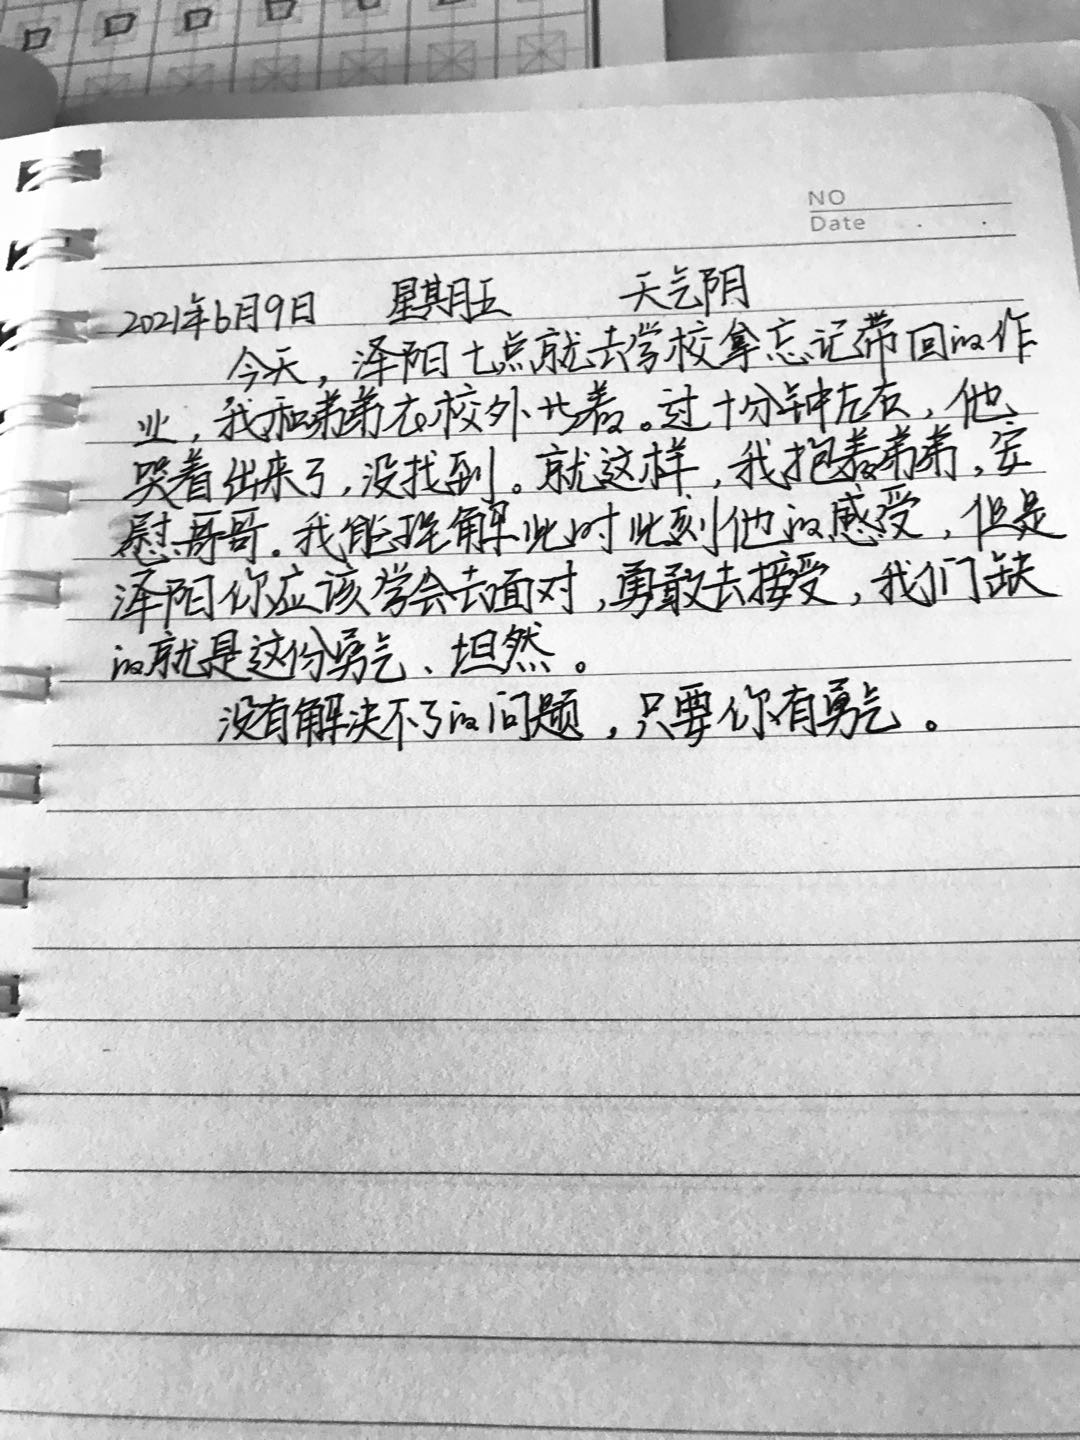 口 口 口 口
NO
Date
2021年6月9日 星期五 天气阴
今天，泽阳七点就去学校拿忘记带回的作
业，我和弟弟在校外等着。过十分钟左右，他
哭着出来了，没找到。就这样，我抱着弟弟，安
慰哥哥。我能理解此时此刻他的感受，但是
泽阳你应该学会去面对，勇敢去接受，我们缺
的就是这份勇气、坦然。
没有解决不了的问题，只要你有勇气。